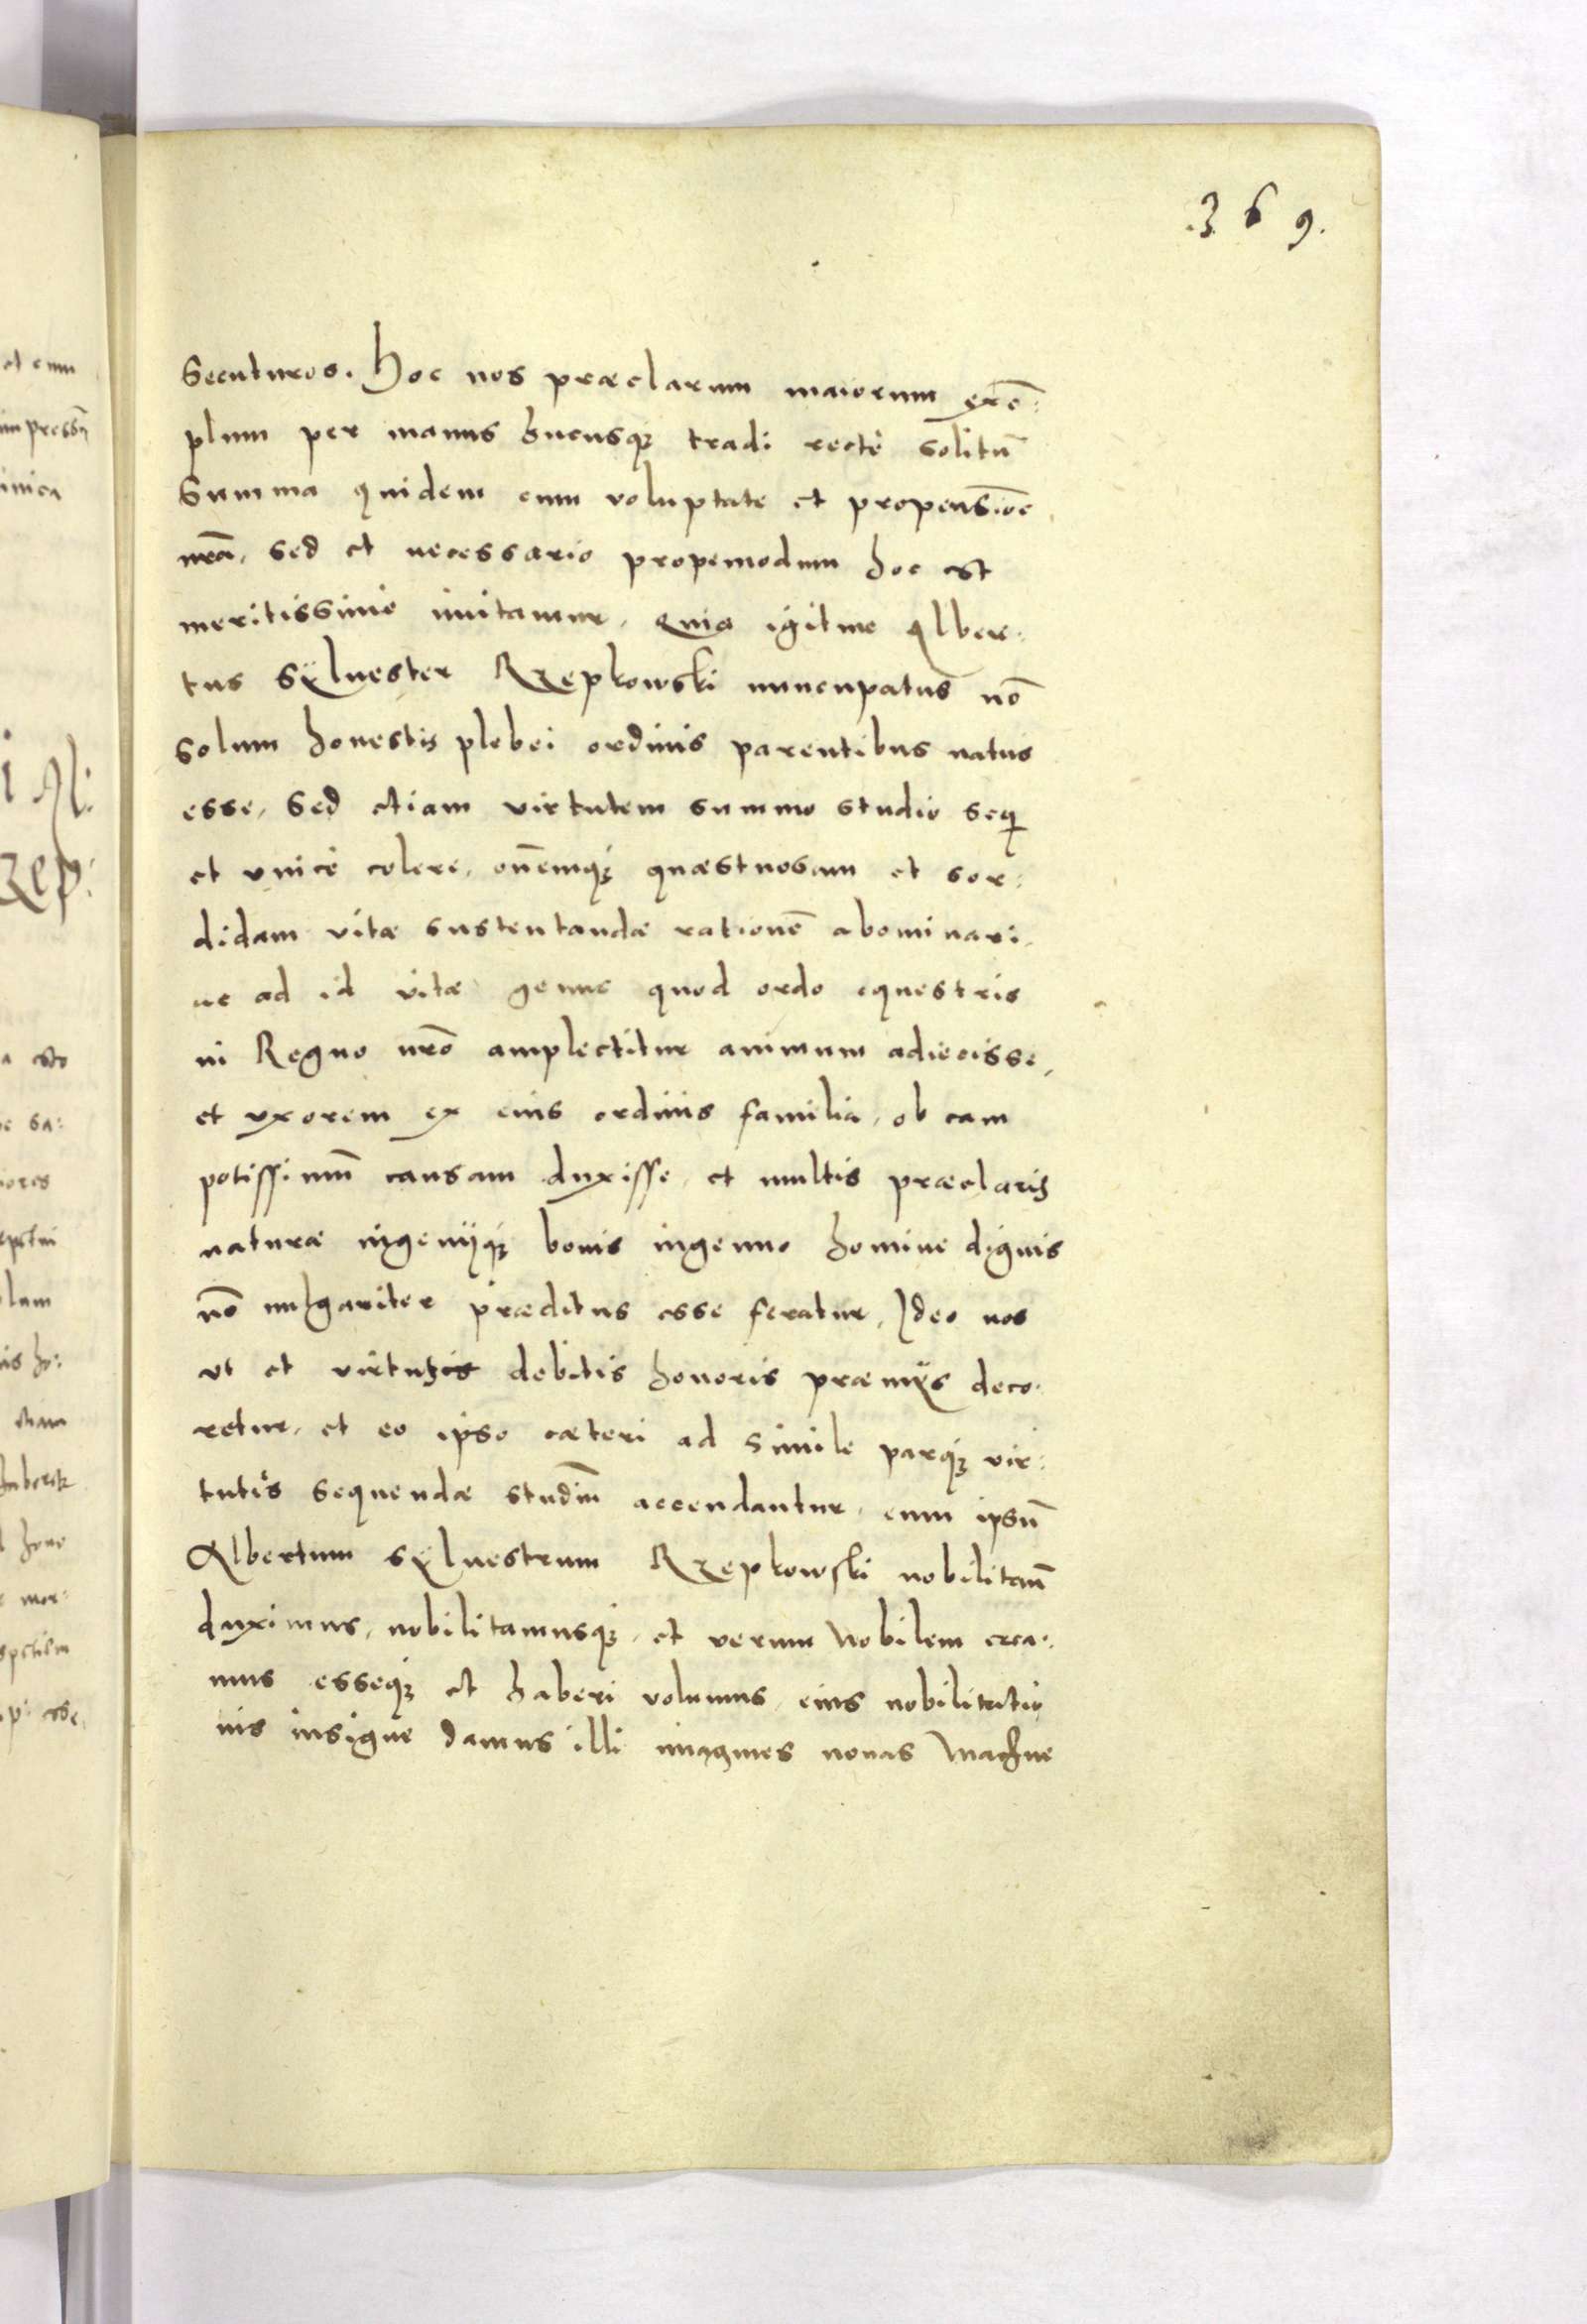 .3 6 9.
Secuturos. Hoc nos præclarum maiorum exē:
plum per manus hucusq; tradi rectè solitū
Summa quidem cum voluptate et propensiōe
nr̄a, sed et necessario propemodum hoc est
meritissimò imitamur. Quia igitur Alber:
tus Sÿluester Rzepkowski nuncupatus nō
solum honestis plebei ordinis parentibus natus
esse, Sed etiam virtutem summo studio sequi
et vnicè colere, om̄emq; quæstuosam et sor:
didam vitæ sustentandæ rationē abominari,
ac ad id vitæ genus quod ordo equestris
in Regno nr̄o amplectitur animum adiecisse,
et vxorem ex eius ordinis familia, ob eam
potissimū causam duxisse, et multis præclaris
naturæ ingenijq; bonis ingenuo homine dignis
nō uulgariter præditus esse feratur, Ideo nos
vt et virtutis debitis honoris præmÿs deco:
retur, et eo ipso cæteri ad simile parq; vir:
tutis sequendæ studiū accendantur, eum ipsū
Albertum Sÿluestrum Rzepkowski nobilitanū
duximus, nobilitamusq;, et verum Nobilem crea:
mus esseq; et haberi volumus, eius nobilitatio
nis insigne damus illi imagines nouas Machne
et cum
impressū
Al:
zep:
a
sa:
lum
is ho:
etiam
mor: